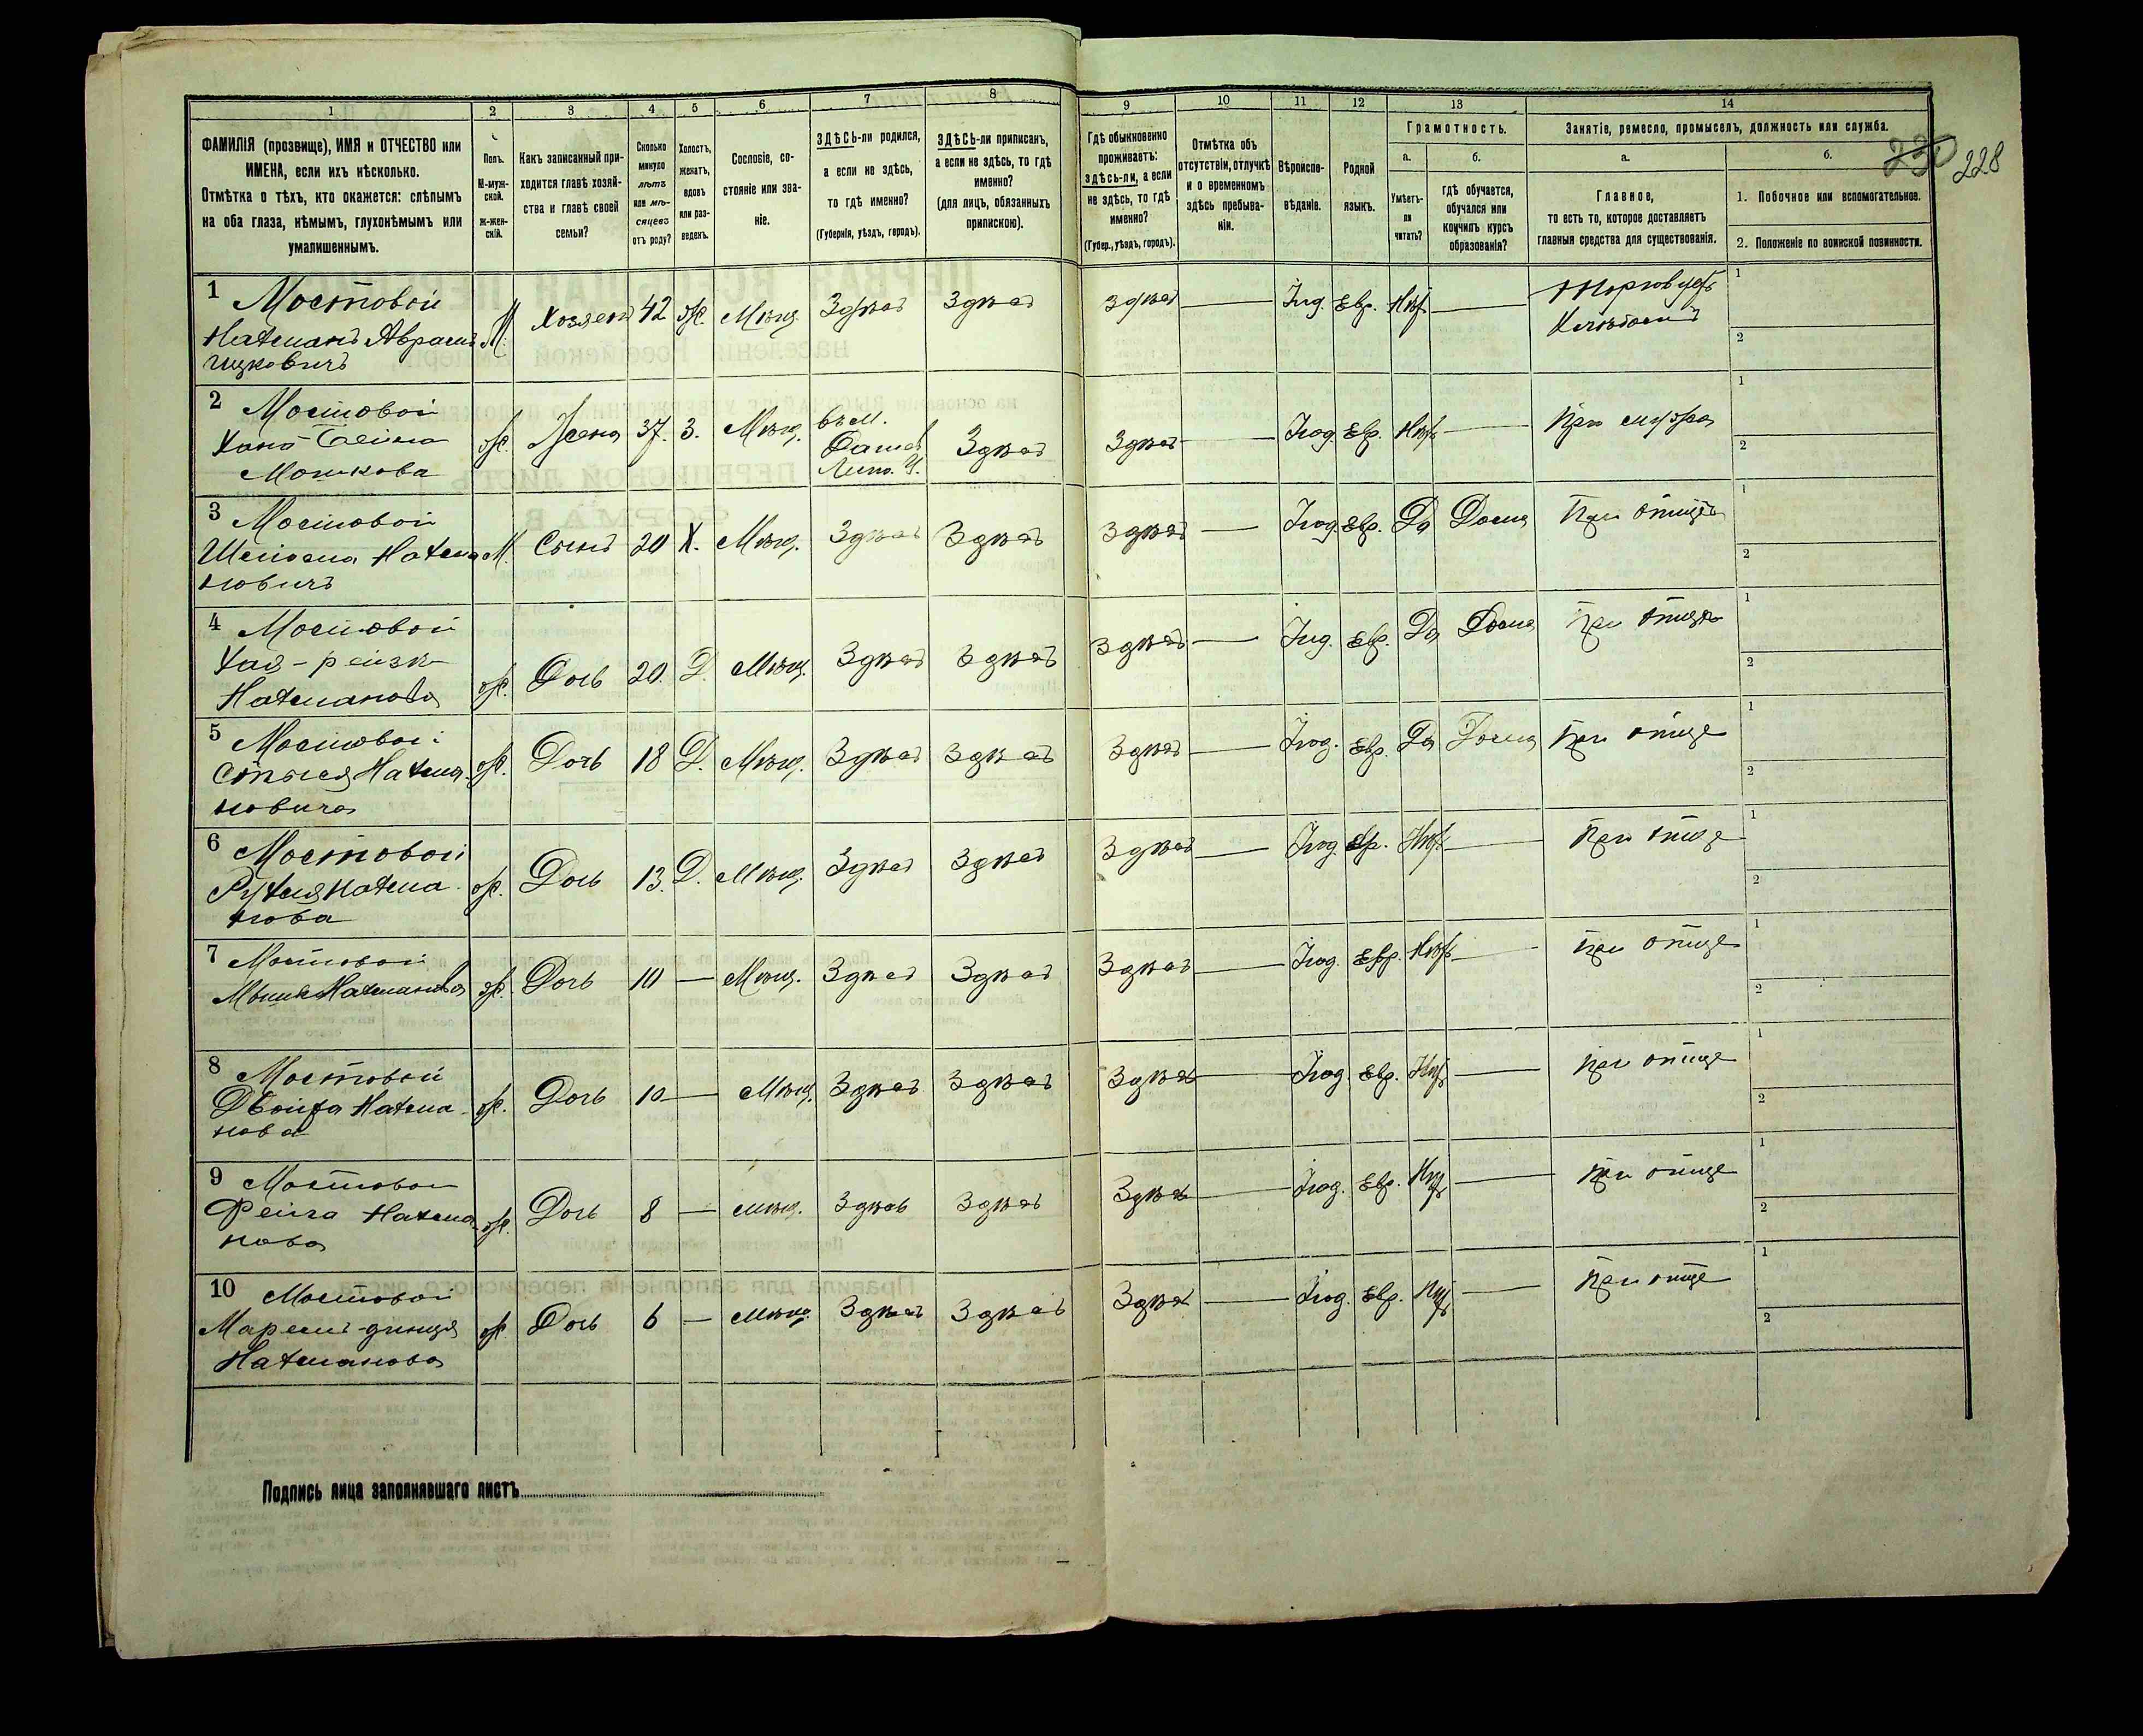 1 2 3 4 5 6 7 8 9 10 11 12 13 14
ФАМИЛІЯ (прозвище), ИМЯ и ОТЧЕСТВО или
ИМЕНА, если ихъ нѣсколько.
Отмѣтка о тѣхъ, кто окажется: слѣпымъ
на оба глаза, нѣмымъ, глухонѣмымъ или
умалишеннымъ.
Полъ.
М-муж-
ской.
ж-жен-
скій.
Какъ записанный при-
ходится главѣ хозяй-
ства и главѣ своей
семьи?
Сколько
минуло
лѣтъ
или мѣ-
сяцевъ
отъ роду?
Холостъ,
женатъ,
вдовъ
или раз-
веденъ.
Сословіе, со-
стояніе или зва-
ніе.
ЗДѢСЬ-ли родился,
а если не здѣсь,
то гдѣ именно?
(Губернія, уѣздъ, городъ).
ЗДѢСЬ-ли приписанъ,
а если не здѣсь, то гдѣ
именно?
(для лицъ, обязанныхъ
припискою).
Гдѣ обыкновенно
проживаетъ:
здѣсь-ли, а если
не здѣсь, то гдѣ
именно?
(Губер., уѣздъ, городъ).
Отмѣтка объ
отсутствіи, отлучкѣ
и о временномъ
здѣсь пребыва-
ніи.
Вѣроиспо-
вѣданіе.
Родной
языкъ.
Грамотность.
а.
Умѣетъ-
ли
читать?
б.
гдѣ обучается,
обучался или
кончилъ курсъ
образованія?
Занятіе, ремесло, промыселъ, должность или служба.
а.
Главное,
то есть то, которое доставляетъ
главныя средства для существованія.
б.
1. Побочное или вспомогательное.
2. Положеніе по воинской повинности.
230 228
1 Мостовой
Нахманъ Аврамъ
Ицковичъ
М. Хозяинъ 42 ж. Мѣщ. Здѣсь Здѣсь Здѣсь — Іуд. Евр. Нѣтъ —
1
2
2 Мостовой
Хана
Мошкова
ж. Жена 37. З. Мѣщ.
въ м.
Лип. У.
Здѣсь Здѣсь — Іуд. Евр. Нѣтъ — При
1
2
3 Мостовой
Нахма
новичъ
М. Сынъ 20 Х. Мѣщ. Здѣсь Здѣсь Здѣсь — Іуд. Евр. Да Дома При отцѣ
1
2
4 Мостовой
Хая-рейзя
Нахманова
ж. Дочь 20. Д. Мѣщ. Здѣсь Здѣсь Здѣсь — Іуд. Евр. Да Дома При отцѣ
1
2
5 Мостовой
Нахма
новича
ж. Дочь 18 Д. Мѣщ. Здѣсь Здѣсь Здѣсь — Іуд. Евр. Да Дома При отце
1
2
6 Мостовой
Рухля Нахма
нова
ж. Дочь 13. Д. Мѣщ. Здѣсь Здѣсь Здѣсь — Іуд. Евр. Нѣтъ — При отце
1
2
7 Мостовой
Нахманова
ж. Дочь 10 — Мѣщ. Здѣсь Здѣсь Здѣсь — Іуд. Евр. Нѣтъ — При отце
1
2
8 Мостовой
Двойра Нахма
нова
ж. Дочь 10 — Мѣщ. Здѣсь Здѣсь Здѣсь — Іуд. Евр. Нѣтъ — При отце
1
2
9 Мостовой
Фейга Нахма
нова
ж. Дочь 8 — мѣщ. Здѣсь Здѣсь Здѣсь — Іуд. Евр. Нѣтъ — При отце
1
2
10 Мостовой
Нахманова
ж. Дочь 6 — мѣщ. Здѣсь Здѣсь Здѣсь — Іуд. Евр. Нѣтъ — При отце
1
2
Подпись лица заполнявшаго листъ